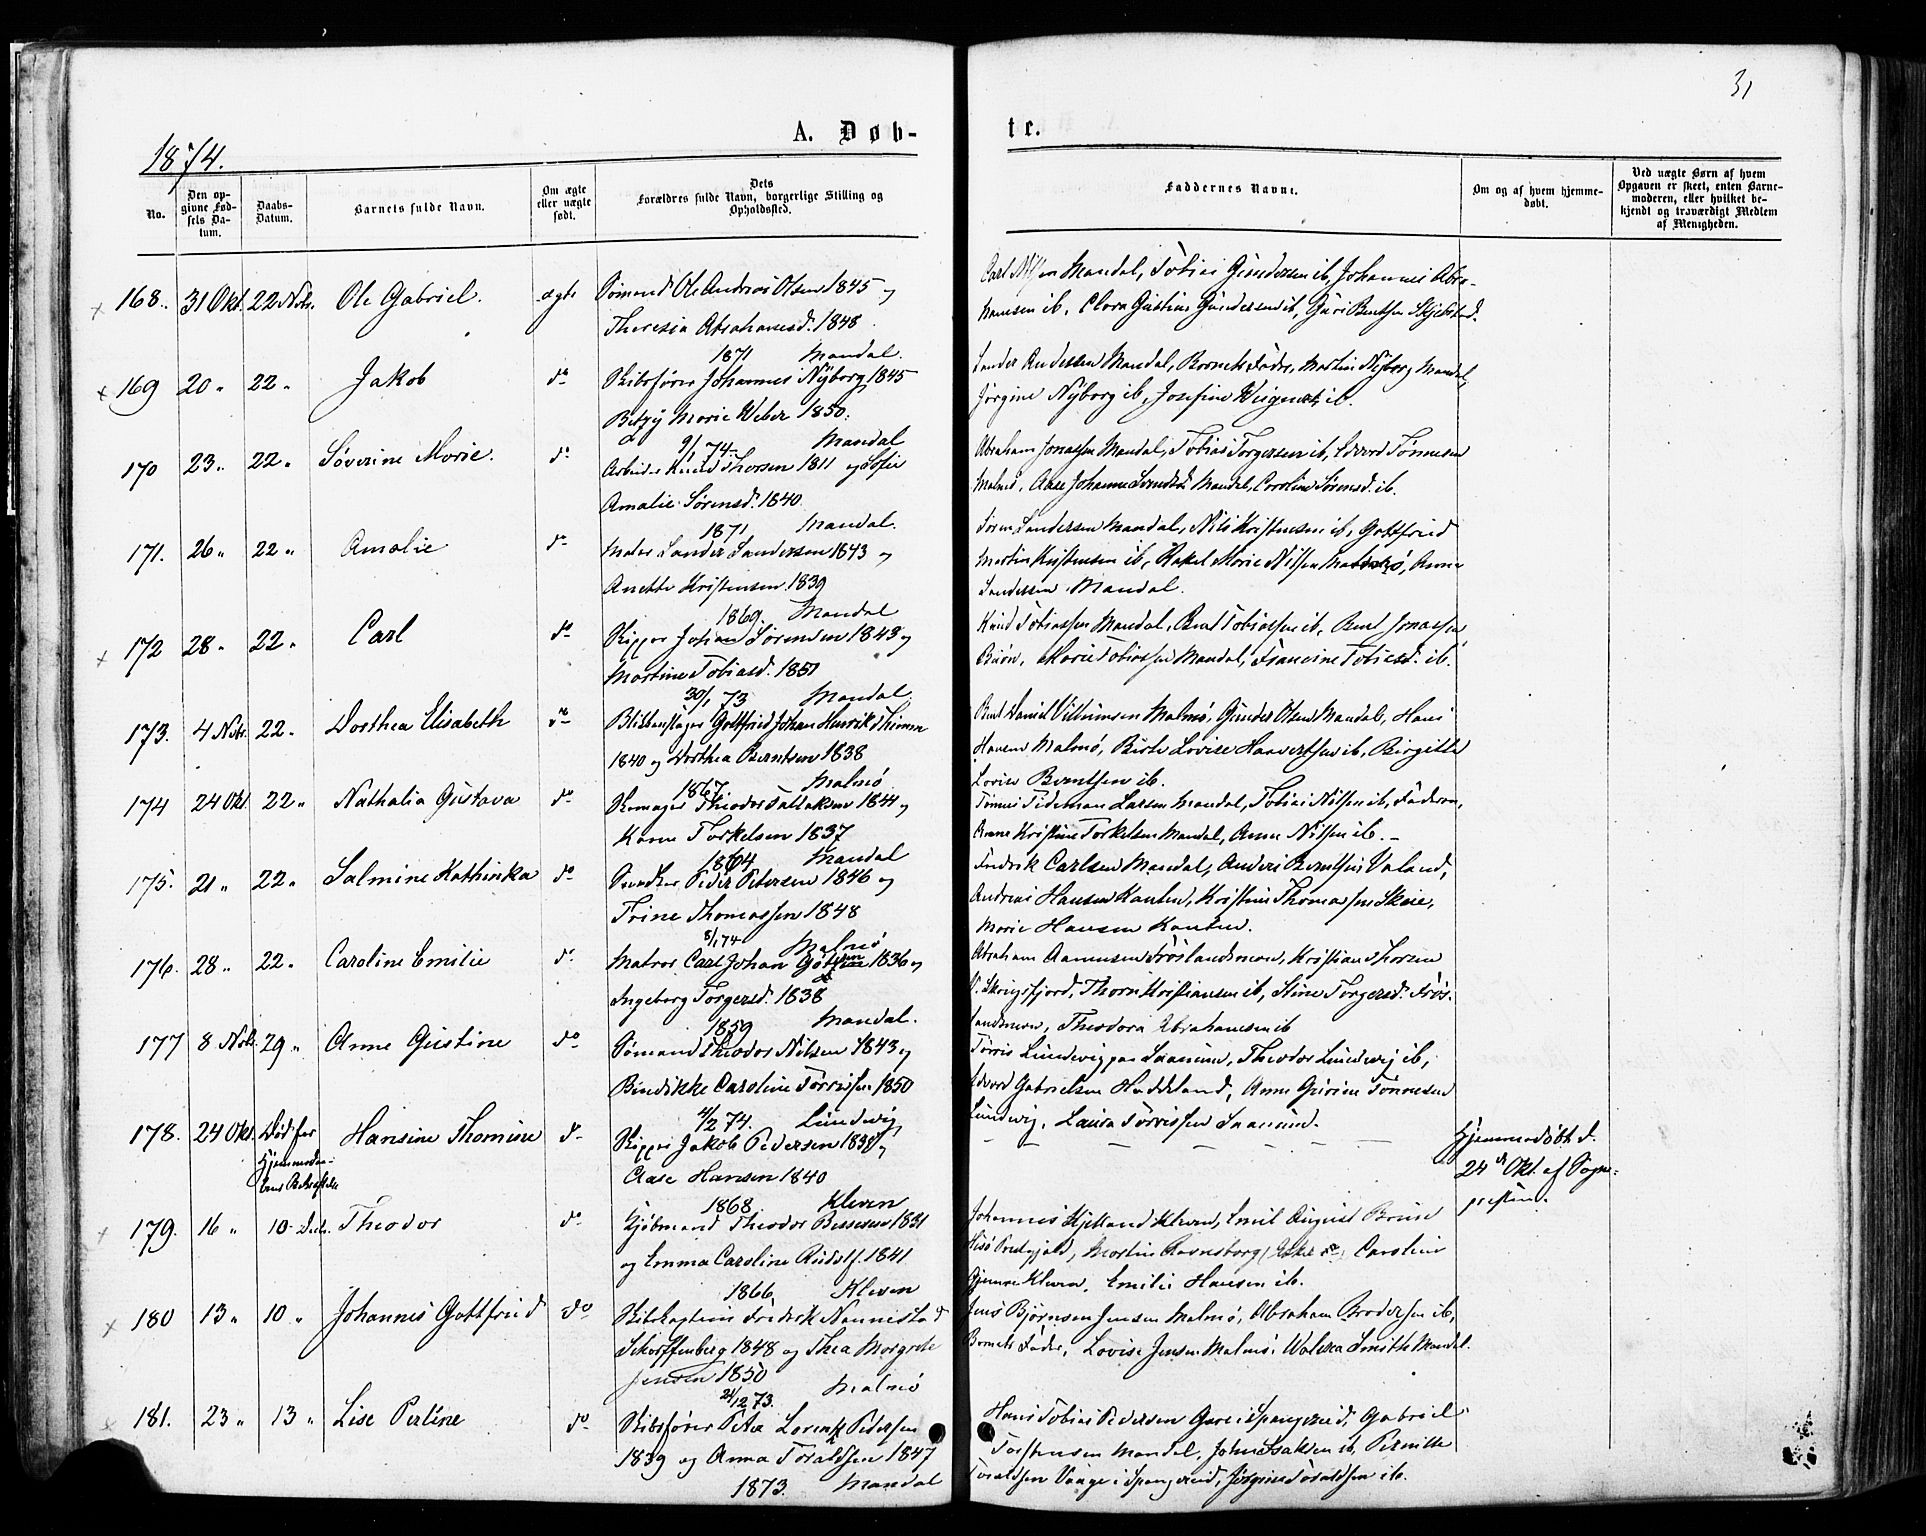 31
A. Døb-
te.
1874.
No.
Den op-
givne Fød-
sels Da-
tum.
Daabs-
Datum.
Barnets fulde Navn.
Om ægte
eller uægte
født.
Dets
Forældres fulde Navn, borgerlige Stilling og
Opholdssted.
Faddernes Navne.
Om og af hvem hjemme-
døbt.
Ved uægte Børn af hvem
Opgaven er skeet, enten Barne-
moderen, eller hvilket be-
kjendt og troværdigt Medlem
af Menigheden.
168. 31 Okt. 22 Novr. Ole Gabriel. ægte Sømand Ole Andreas Olsen 1845 og
Theresia Abrahamsd. 1848
1871 Mandal.
Carl Nilsen Mandal, Tobias Gundersen ib, Johannes Abra-
hamsen ib, Clara Gustine Gundersen ib, Guri Bentsen Skjebstad.
169 20 " 22 " Jakob do Skibsfører Johannes Nyborg 1845
Betzy Marie Weber 1850.
9/1 74 Mandal
Sander Andersen Mandal, Barnets Fader, Martin Nyborg Mandal,
Jørgine Nyborg ib, Josefine ib.
170 23 " 22 " Søverine Marie. do Arbeider Knud Thorsen 1811 og Sofie
Amalie Sørensd. 1840
1871 Mandal.
Abraham Jonassen Mandal, Tobias Torgersen ib, Edvard Tønnesen
Malmø, Aase Johanne Mandal, Caroline Sørensd. ib.
171. 26 " 22 " Amalie do Sander Sandersen 1843 og
Anette Kristensen 1839
1869. Mandal
Søren Sandersen Mandal, Nils Kristensen ib, Gottfried
Martin Kristensen ib, Rakel Marie Nilsen Malmø, Anne
Sandersen Mandal.
172 28 " 22 " Carl do Skipper Josian Sørensen 1843 og
Martine Tobiasd. 1851
30/1 73 Mandal
Knud Tobiassen Mandal, Bent Tobiassen ib, Bent Jonassen
Buøn, Marie Tobiassen Mandal, Francine Tobiasd. ib.
173. 4 Novr. 22 " Dorthea Elisabeth do Blikkenslager Gottfried Johan Henrik Thimm
1840 og Dorthea Berntsen 1838
1867 Malmø
Bent Daniel Vilhumsen Malmø, Gunder Olsen Mandal, Hans
Hansen Malmø, Birte Lovise Haaversen ib, Birgitte
Lovise Berntsen ib.
174 24 Okt. 22 " Nathalia Gustava do Skomager Theodor Tallaksen 1844 og
Karen Torkelsen 1837
1864 Mandal
Tønnes Tideman Larsen Mandal, Tobias Nilsen ib, Faderen,
Anne Kristine Torkelsen Mandal, Anne Nilsen ib. –
175. 21 " 22 " Salmine Kathinka do Snedker Peder Petersen 1846 og
Trine Thomassen 1848
8/1 74 Malmø
Fredrik Carlsen Mandal, Anders Berntsen Valand,
Andreas Hansen Kanten, Kristine Thomassen Skeie,
Marie Hansen Kanten.
176. 28 " 22 " Caroline Emilie do Matros Carl Johan 1836 og
Ingeborg Torgersd. 1838
1859 Mandal.
Abraham Aanensen Frøslandsmoen, Kristian Thorsen
V. Skougsfjord, Thorn Kristiansen ib, Stine Torgersd. Frøs-
landsmoen, Theodora Abrahamsen ib
177 8 Novr. 29 " Anne Gustine do Sømand Theodor Nilsen 1843 og
Bendikke Caroline Tørrisen 1850
4/2 74. Lundevig
Tørris Lundevig Saanum, Theodor Lundevig ib,
Edvard Gabrielsen Haddeland, Anne Gurine Tønnesen
Lundevig, Laura Tørrissen Saanum.
178. 24 Okt. Død før
Hjemmedaa-
bens Bekræftelse Hansine Thomine do Skipper Jakob Pedersen 1838 og
Aase Hansen 1840
1868. Kleven
– – – – – –
Hjemmedøbt d.
24de Okt. af Sogne-
presten.
179. 16 " 10 Decbr. Theodor do Kjøbmand Theodor Bessesen 1831
og Emma Caroline Rudolf. 1841
1866. Kleven
Johannes Kjelland Kleven, Emil August Bruse
Hisø Prestgjeld, Martin Ravnsborg, Caroline
Gjemre Kleven, Emilie Hansen ib.
180 13 " 10 " Johannes Gottfried do Skibskaptein Fredrik Nannestad
Scharffenberg 1848 og Thea Margrete
Jensen 1850
21/12 73. Malmø
Jens Bjørnsen Jensen Malmø, Abraham Brodersen ib,
Barnets Fader, Lovise Jensen Malmø, Waleska Smith Mandal.
181. 23 " 13 " Lise Perline do Skibsfører Peter Lorentz Pedersen
1839 og Anna Toraldsen 1847
1873. Mandal
Hans Tobias Pedersen Gare i Spangereid, Gabriel
Torstensen Mandal, John Isaksen ib, Pernille
Toraldsen Vaage i Spangereid, Jørgine Toraldsen ib.